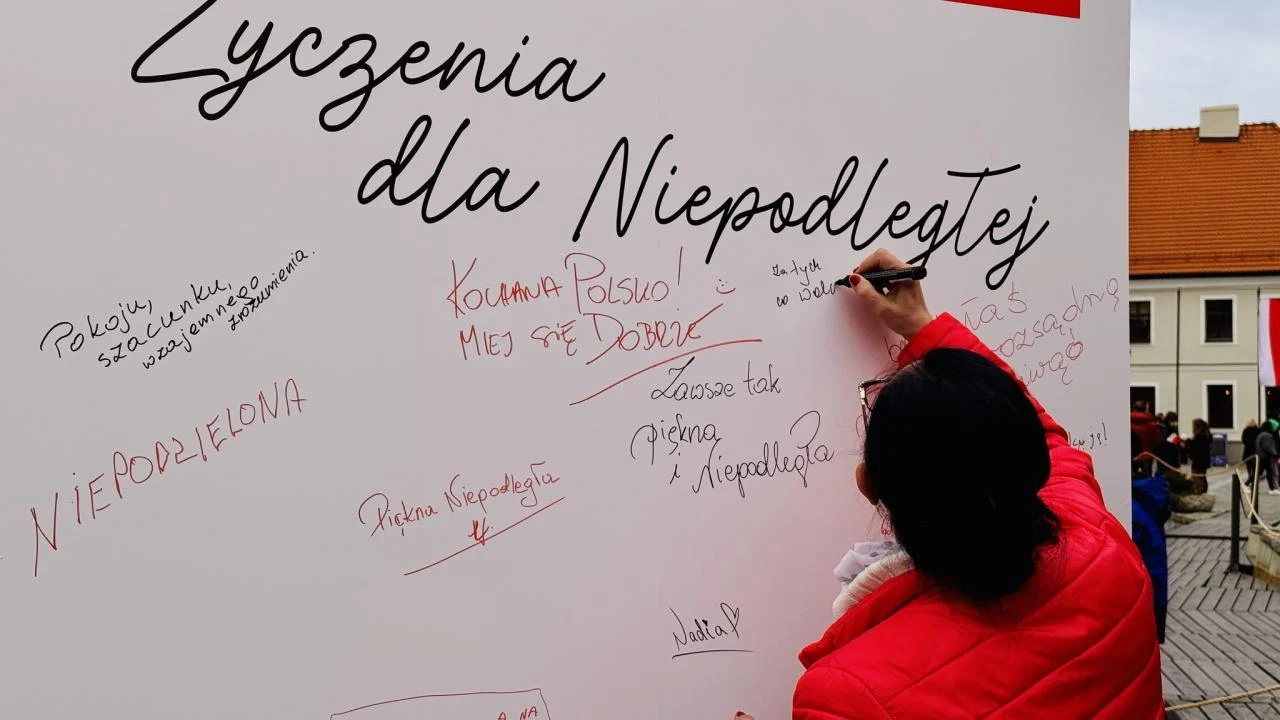 Życzenia
dla Niepodległej
Pokoju,
szacunku,
wzajemnego
zrozumienia.
KOCHANA POLSKO!
MIEJ SIĘ DOBRZE
Za tych
co
Zawsze tak
piękna
i Niepodległa
NIEPODZIELONA
Piękna Niepodległa
Nadia
NA